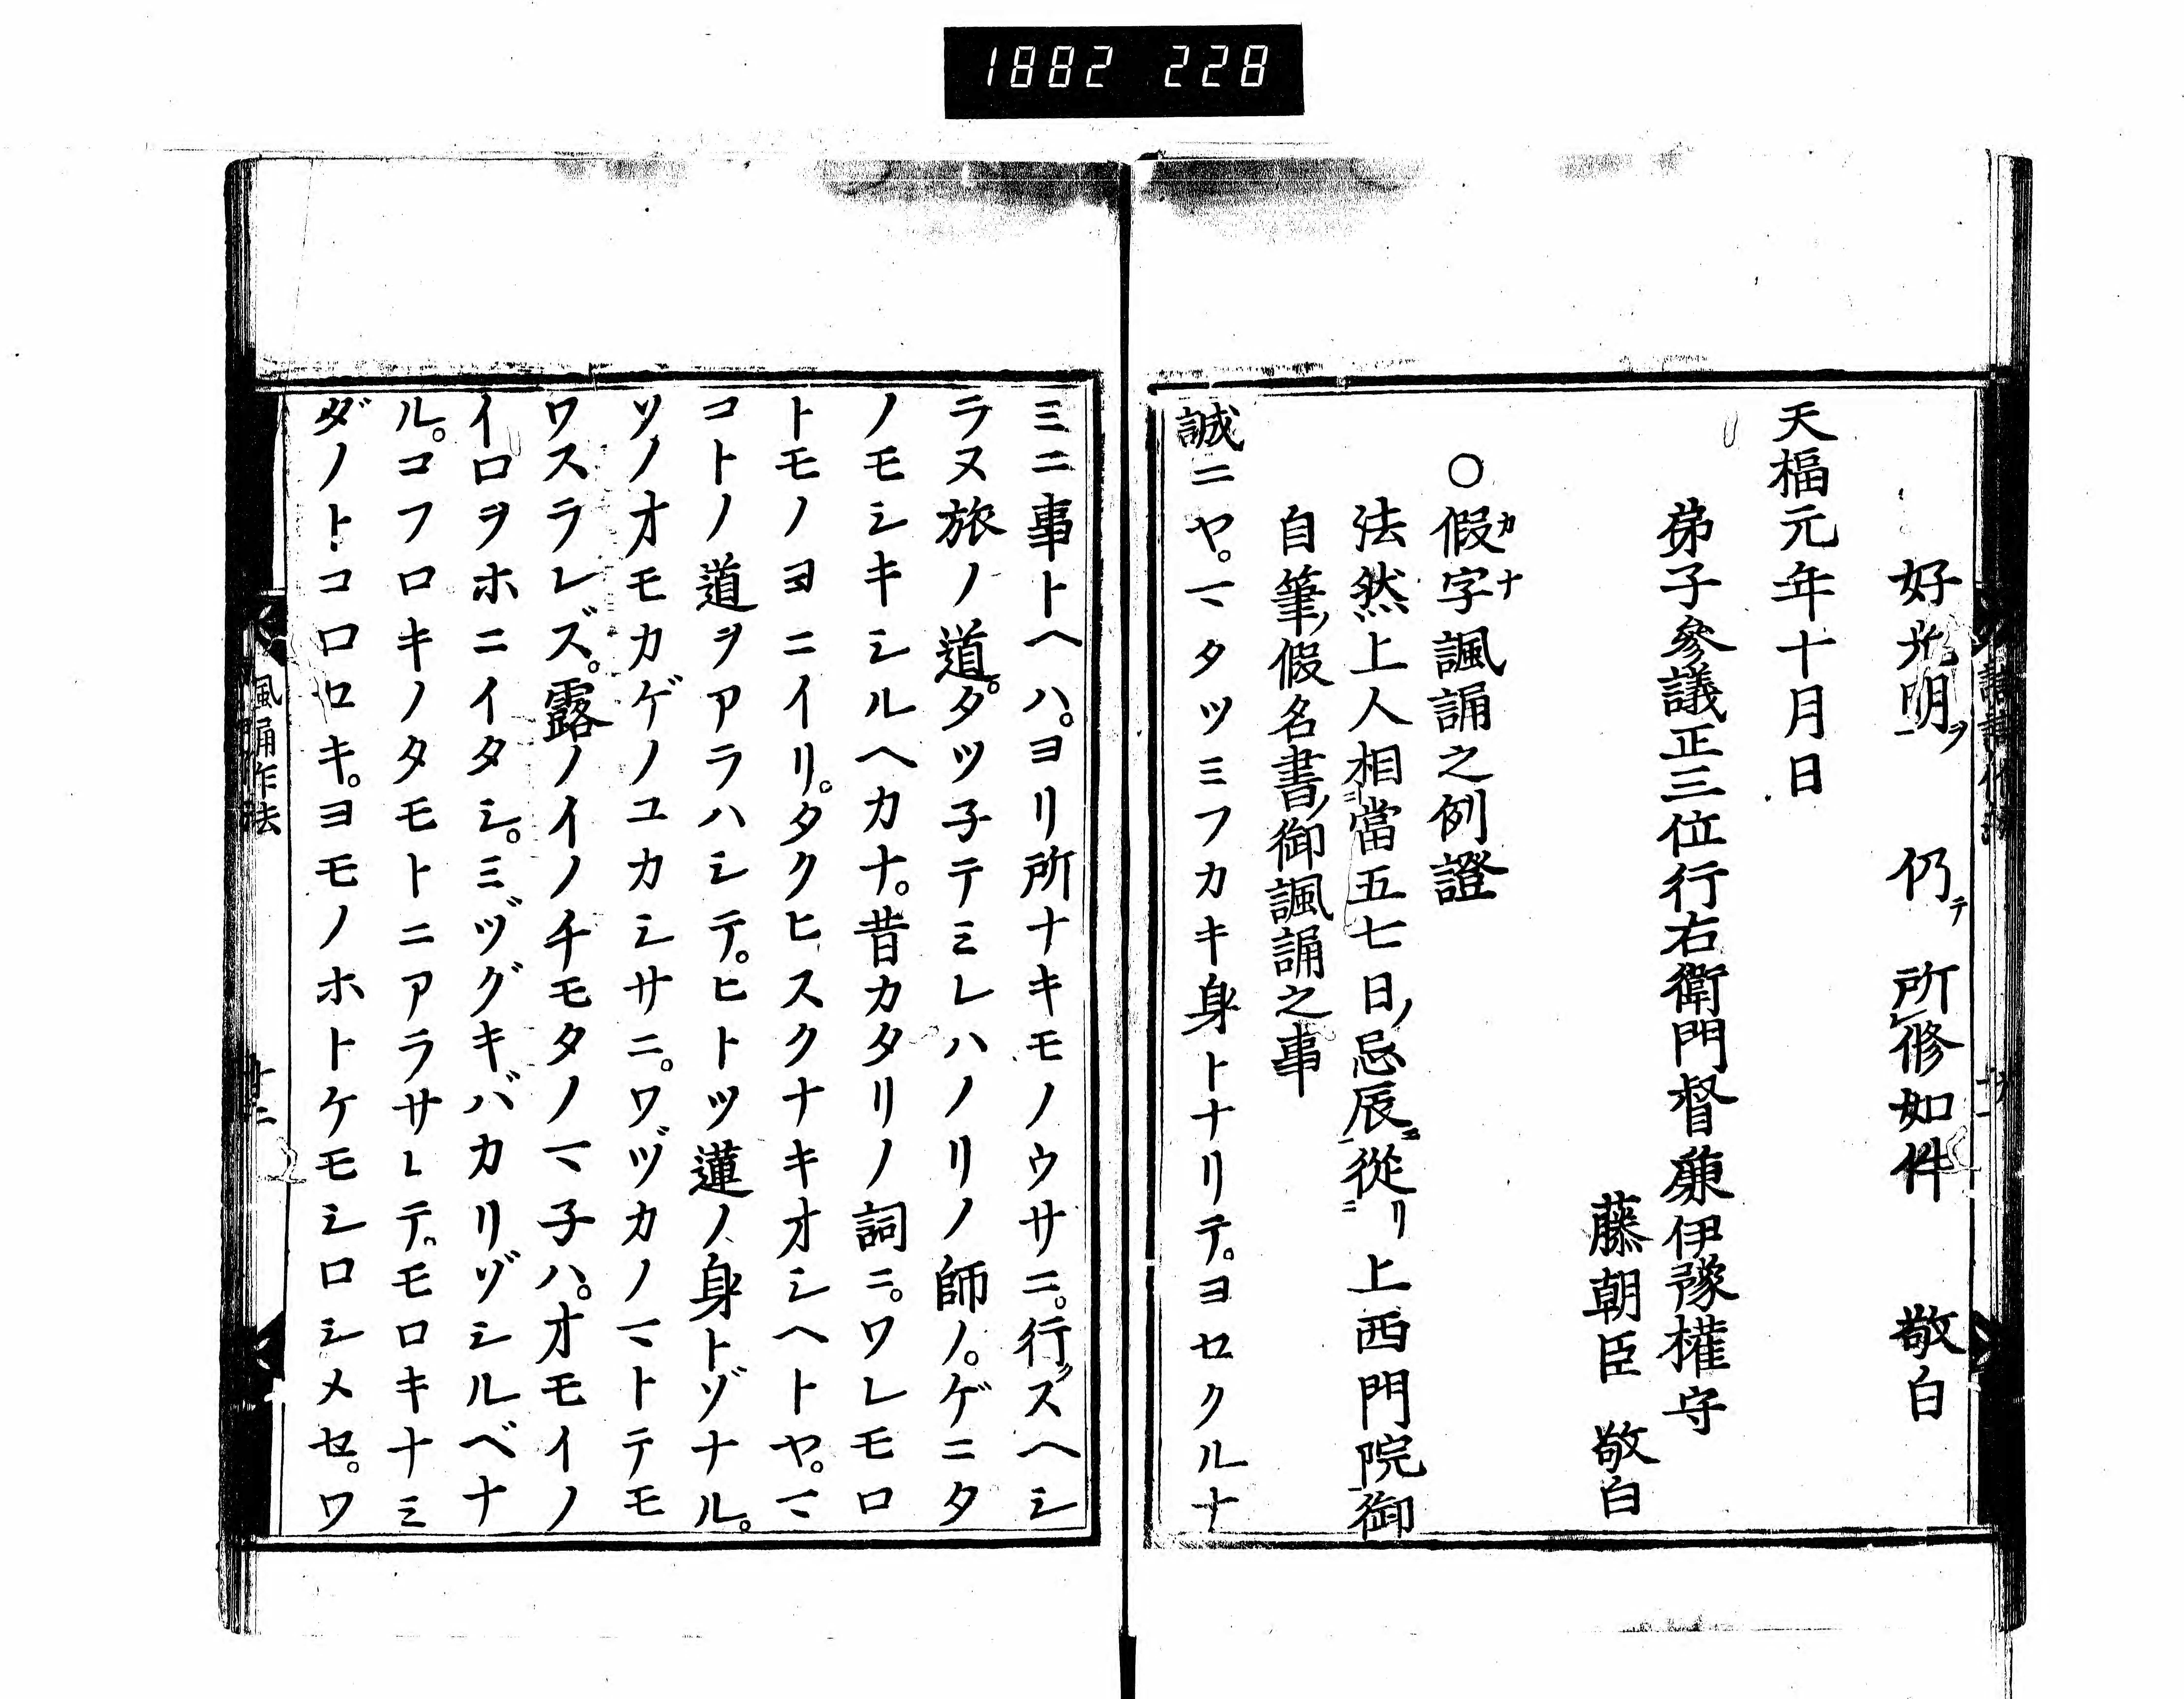 1882 228
好光明ヲ 仍テ 所レ修如件 敬白
天福元年十月日
弟子參議正三位行右衛門督兼伊豫權守
藤朝臣 敬白
○假字諷誦之例證
カナ
法然上人相當五七日ノ忌辰ニ從リ上西門院御
自筆ノ假名書ノ御諷誦之事
誠ニヤ。マタツミフカキ身トナリテ。ヨセクルナ
ミニ事トヘハ。ヨリ所ナキモノウサニ。行クスヘシ
ラヌ旅ノ道。タツ子テミレハノリノ師ノ。ゲニタ
ノモシキシルヘカナ。昔カタリノ詞ニ。ワレモロ
トモノヨニイリ。タクヒスクナキオシヘトヤ。マ
コトノ道ヲアラハシテ。ヒトツ蓮ノ身トゾナル。
ソノオモカゲノユカシサニ。ワヅカノマトテモ
ワスラレズ。露ノイノチモタノマ子ハ。オモイノ
イロヲホニイタシ。ミヅグキバカリゾシルベナ
ル。コフロキノタモトニアラサレテ。モロキナミ
ダノトコロロキ。ヨモノホトケモシロシメセ。ワ
諷誦作法